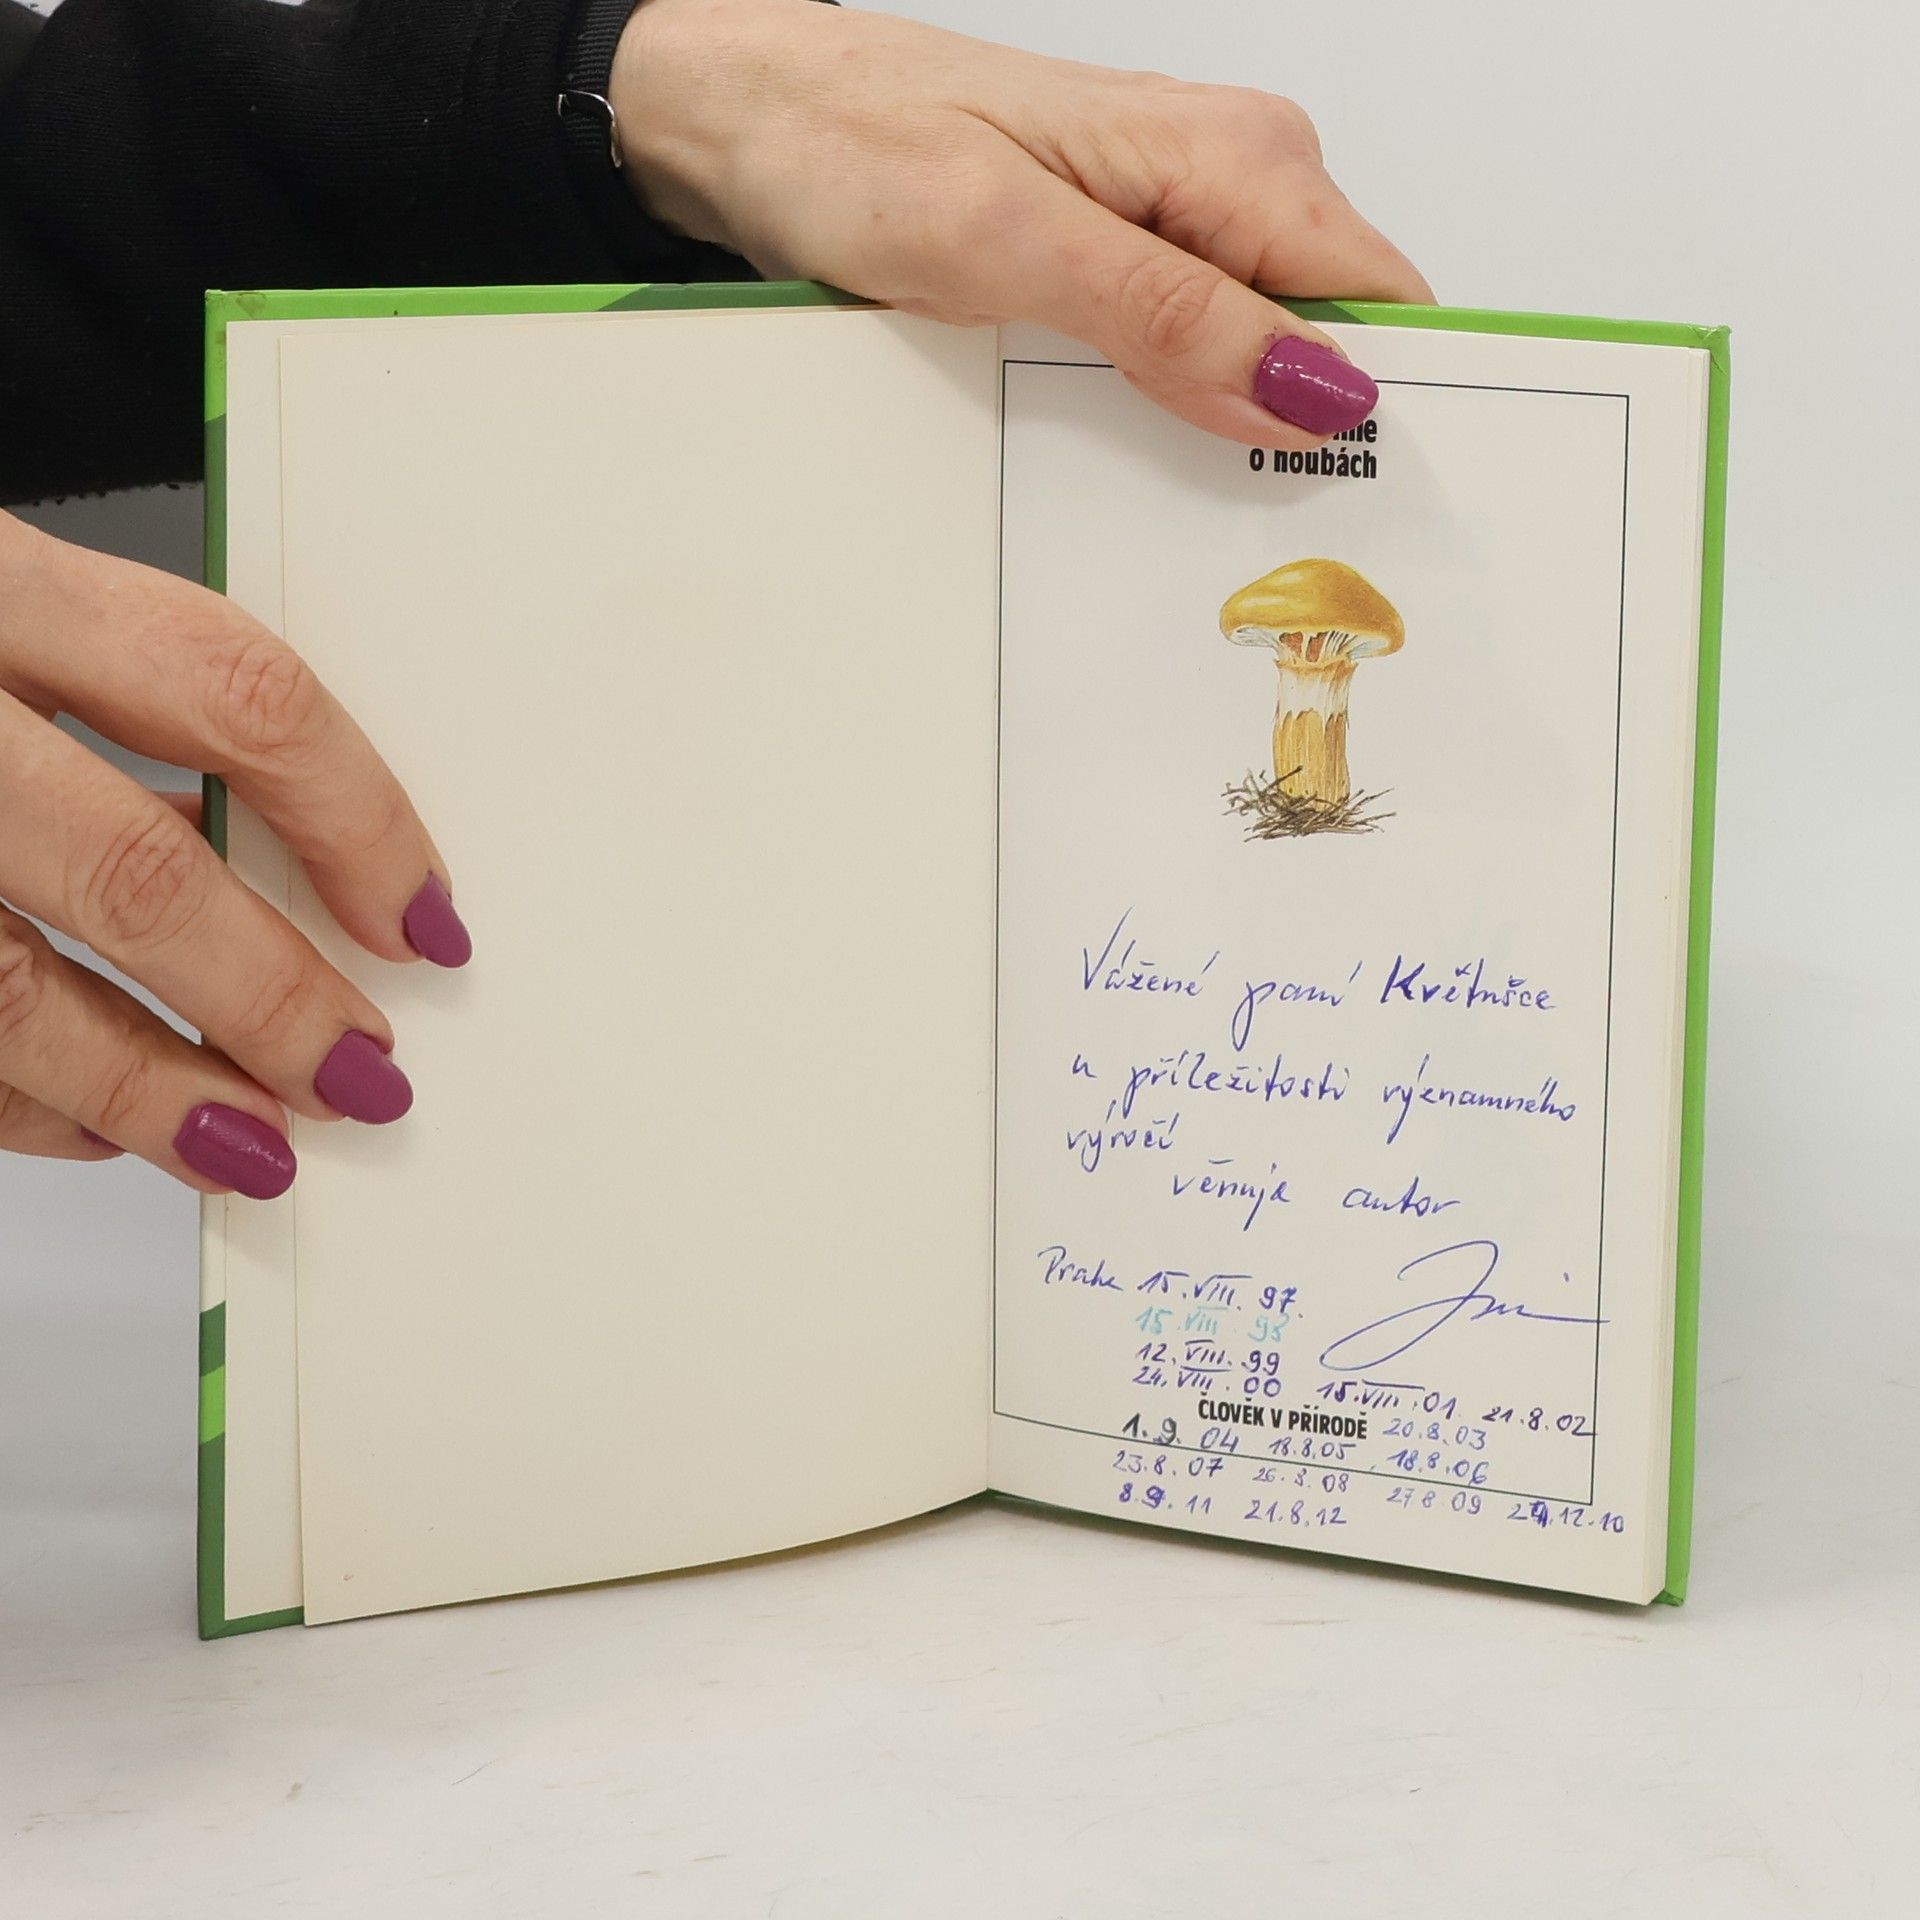 o houbách
Vážené paní Květušce
u příležitosti významného
výročí
věnuje autor
Praha 15. VIII. 97.
15. VIII. 98
12. VIII. 99
24. VIII. 00 15. VIII. 01. 21.8.02
ČLOVĚK V PŘÍRODĚ 20.8.03
1.9. 04 18.8.05 18.8.06
23.8.07 26.8.08 27 8 09 .12.10
8.9.11 21.8.12